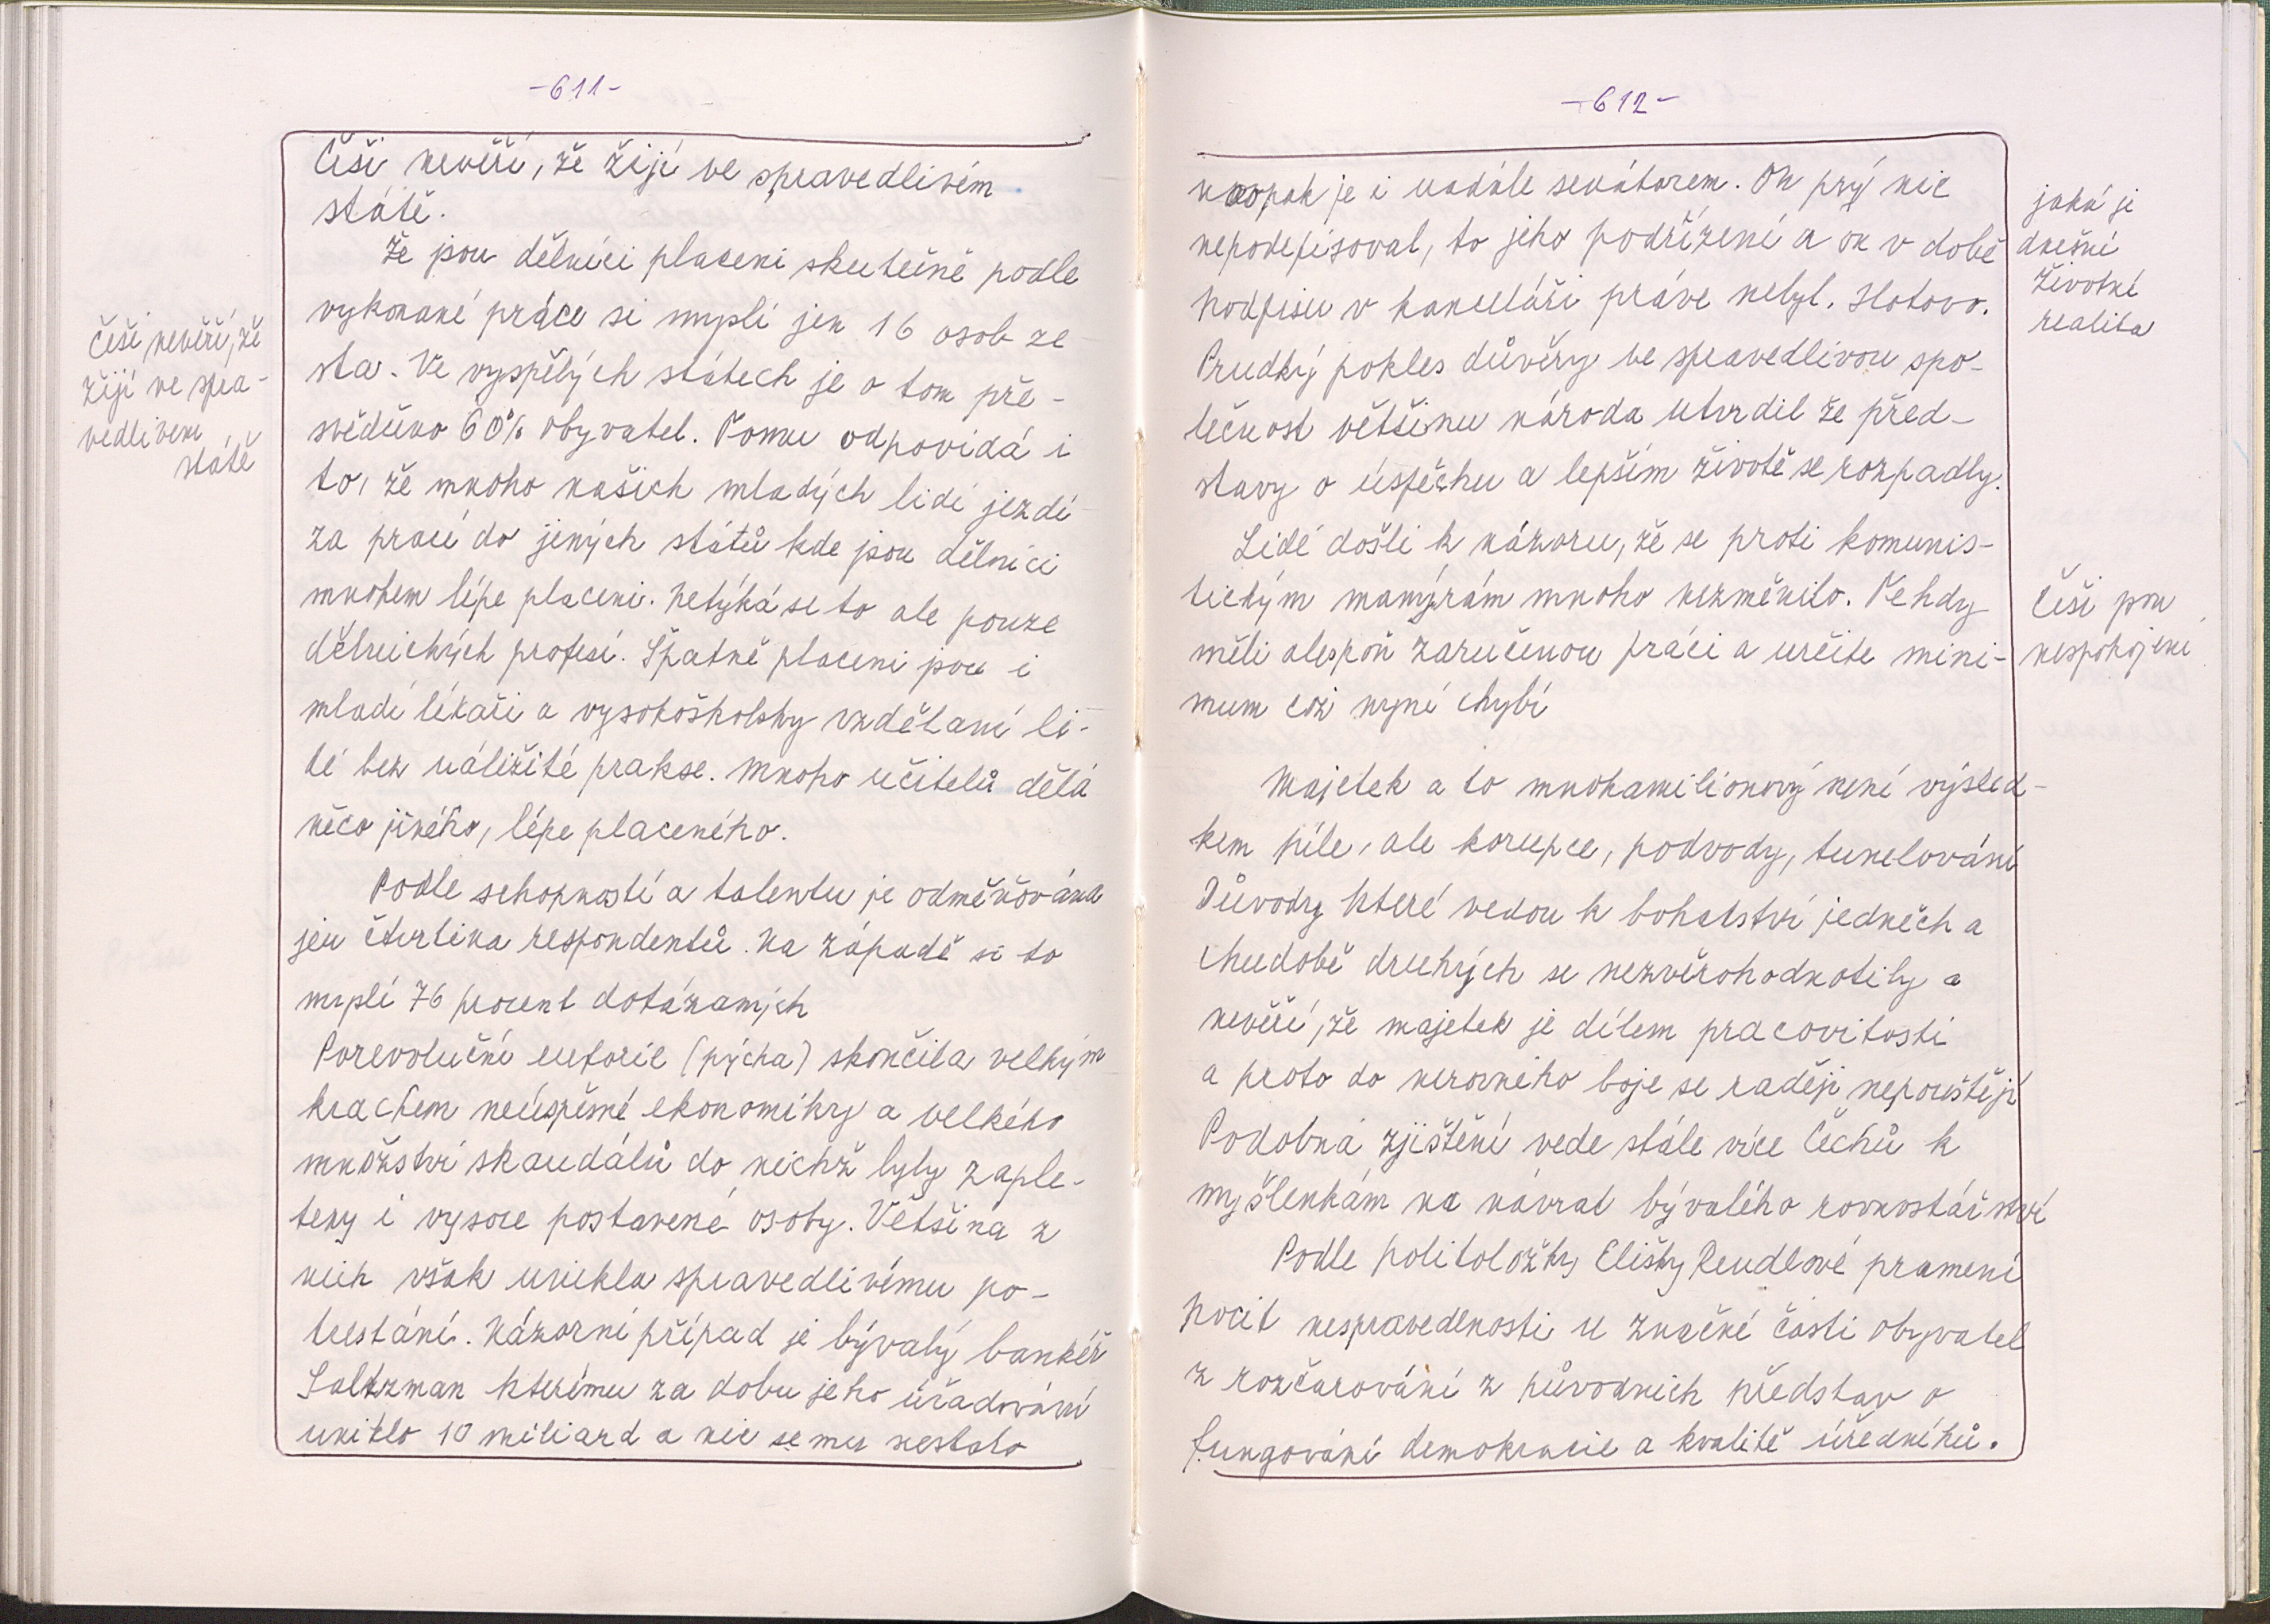 -611-
Češi nevěří, že žijí ve spravedlivém
státě.
Že jsou dělníci placeni skutečně podle
vykonané práce si myslí jen 16 osob ze
sta. Ve vyspělých státech je o tom pře-
svědčeno 60% obyvatel. Tomu odpovídá i
to, že mnoho našich mladých lidí jezdí
za prací do jených států kde jsou dělníci
mnohem lépe placeni. Netýká se to ale pouze
dělnických profesí. Špatně placeni jsou i
mladí lékaři a vysokoškolsky vzdělaní li-
dé bez náležité prakse. Mnoho učitelů dělá
něco jiného, lépe placeného.
Podle schopností a talentu je odměňována
jen čtvrtina respondentů. Na západě si to
myslí 76 procent dotázaných
Porevoluční euforie (pýcha) skončila velkým
krachem neúspěšné ekonomiky a velkého
množství skandálů do nichž byly zaple-
teny i vysoce postavené osoby. Většina z
nich však unikla spravedlivému po-
trestání. Názorní případ je bývalý bankéř
Saltzman kterému za dobu jeho úřadování
uniklo 10 miliard a nic se mu nestalo
Češi nevěří, že
žijí ve spra-
vedlivem
státě
-612-
naopak je i nadále senátorem. On prý nic
nepodepisoval, to jeho podřízení a on v době
podpisu v kanceláři práve nebyl. Hotovo.
Prudký pokles důvěry ve spravedlivou spo-
lečnost většinu národa utvrdil že před-
stavy o úspěchu a lepším životě se rozpadly.
Lidé došli k názoru, že se proti komunis-
tickým manýrám mnoho nezměnilo. Tehdy
měli alespoň zaručenou práci a určite mini-
mum což nyní chybí
Majetek a to mnohamilionový není výsled-
kem píle, ale korupce, podvody, tunelování
Důvody které vedou k bohatství jedněch a
chudobě druhých se nezvěrohodnotily a
nevěří, že majetek je dílem pracovitosti
a proto do nerovného boje se raději nepouštějí
Podobná zjištění vede stále více Čechů k
myšlenkám na návrat bývalého rovnostářství
Podle politoložky Elišky Rendlové pramení
pocit nespravedlnosti u značné části obyvatel
z rozčarování z původních představ o
fungování demokracie a kvalitě úředníků.
jaká je
dnešní
životní
realita
Češi jsou
nespokojeni